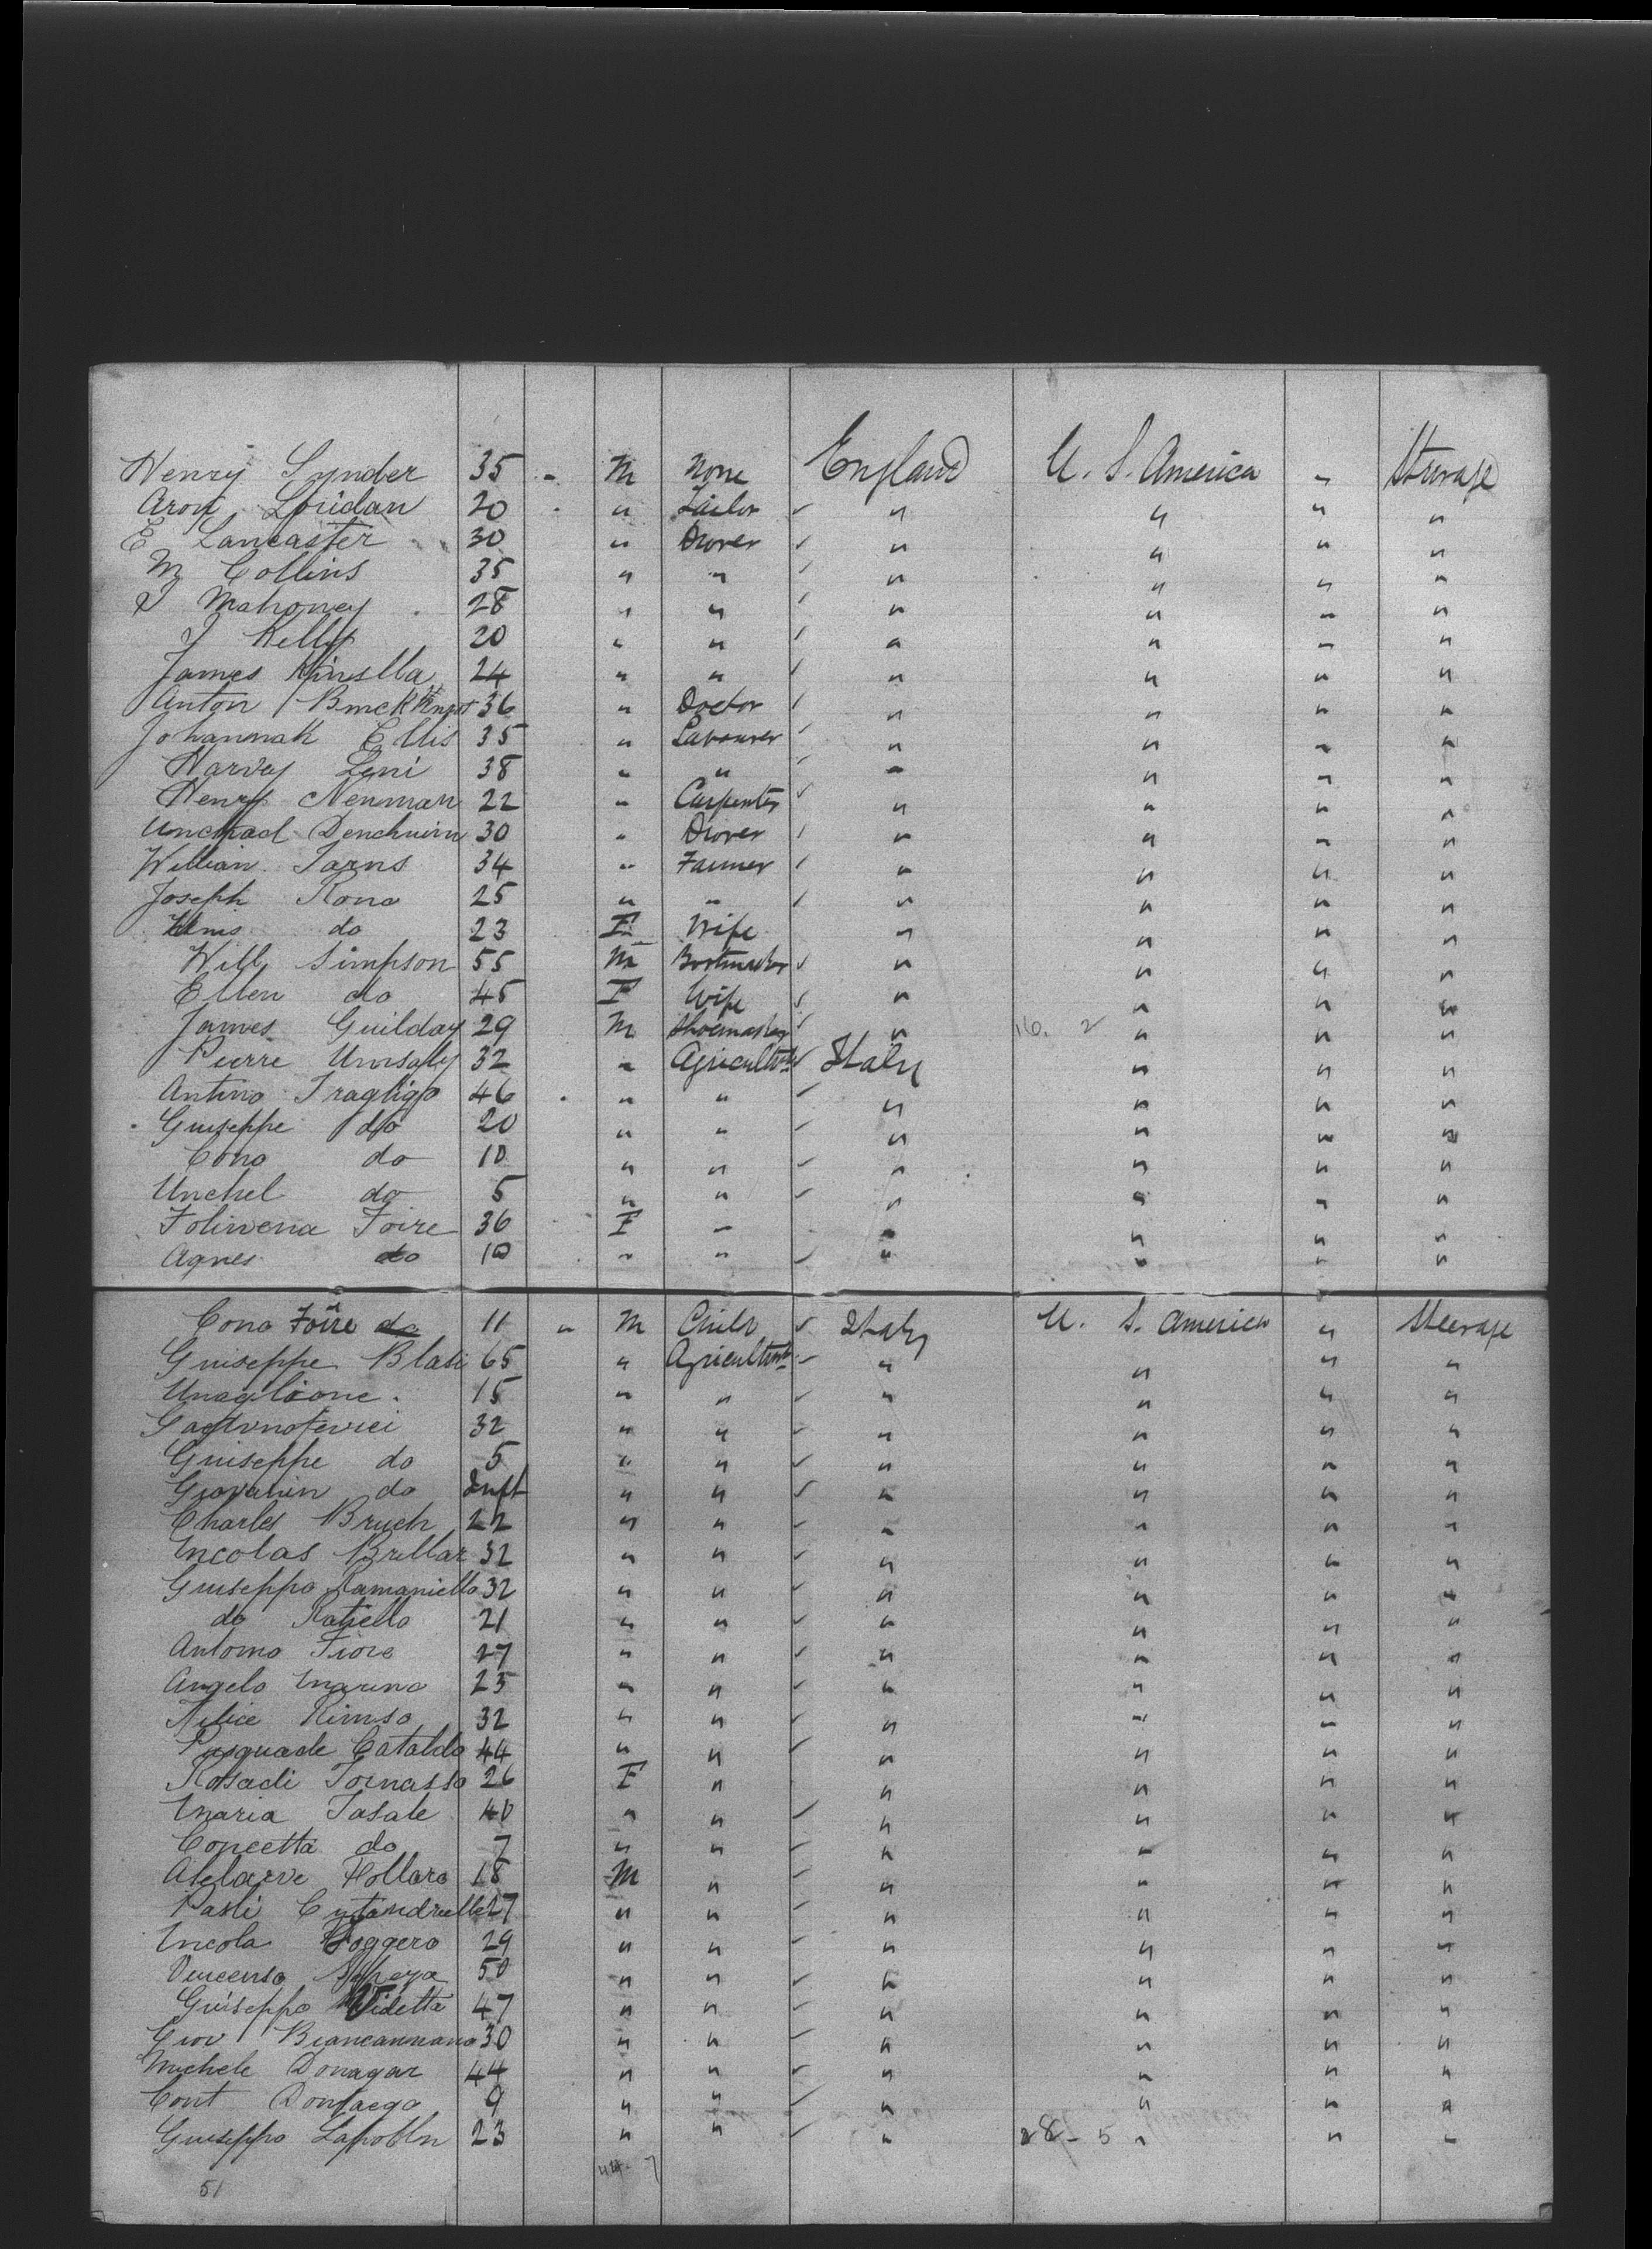 Henry Synder 35 " M None England U. S. America " Steerage
Aron Loridan 20 " Tailor " " " "
E Lancaster 30 " Drover " " " "
M Collins 35 " " " " " "
J Mahoney 28 " " " " " "
J Kelly 20 " " " " " "
James Kinslla 24 " " " " " "
Anton 36 " Doctor " " " "
Johannah Ellis 35 " Labourer " " " "
Harvey Leni 38 " " " " " "
Henry Nenman 22 " Carpenter " " " "
30 " Drover " " " "
William Tarns 34 " Farmer " " " "
Joseph Rono 25 " " " " " "
do 23 F Wife " " " "
Will Simpson 55 M Bootmaker " " " "
Ellen do 45 F Wife " " " "
James Guilday 29 M Shoemaker " 16. 2 " " "
Pierre 32 " Agricultr Italy " " "
Antino 46 " " " " " "
Guiseppe do 20 " " " " " "
Cono do 10 " " " " " "
Unchel do 5 " " " " " "
Foliwena Foire 36 F " " " " "
Agnes do 10 " " " " " "
Cono Foire do 11 " M Child Italy U. S. America " Steerage
Guiseppe Blasi 65 " Agricultr " " " "
Unaglione 15 " " " " " "
32 " " " " " "
Guiseppe do 5 " " " " " "
Giovanin do Inft " " " " " "
Charles Bruch 22 " " " " " "
Incolas Brellar 32 " " " " " "
Guiseppo Ramaniello 32 " " " " " "
do Ratiello 21 " " " " " "
Antonio Fiore 27 " " " " " "
Angelo Marino 25 " " " " " "
Felice 32 " " " " " "
Pasquade Cataldo 44 " " " " " "
Rosadi Tornasso 26 F " " " " "
Maria Tasale 40 " " " " " "
Concetta do 7 " " " " " "
Hollaro 18 M " " " " "
Pasli 27 " " " " " "
Incola Boggero 29 " " " " " "
Vincenso 50 " " " " " "
Guiseppo Videtta 47 " " " " " "
Giov Biancanmano 30 " " " " " "
Michele Donagar 44 " " " " " "
Cont 9 " " " " " "
Guiseppo 23 " " " 28 - 5 " " "
44. 7
51